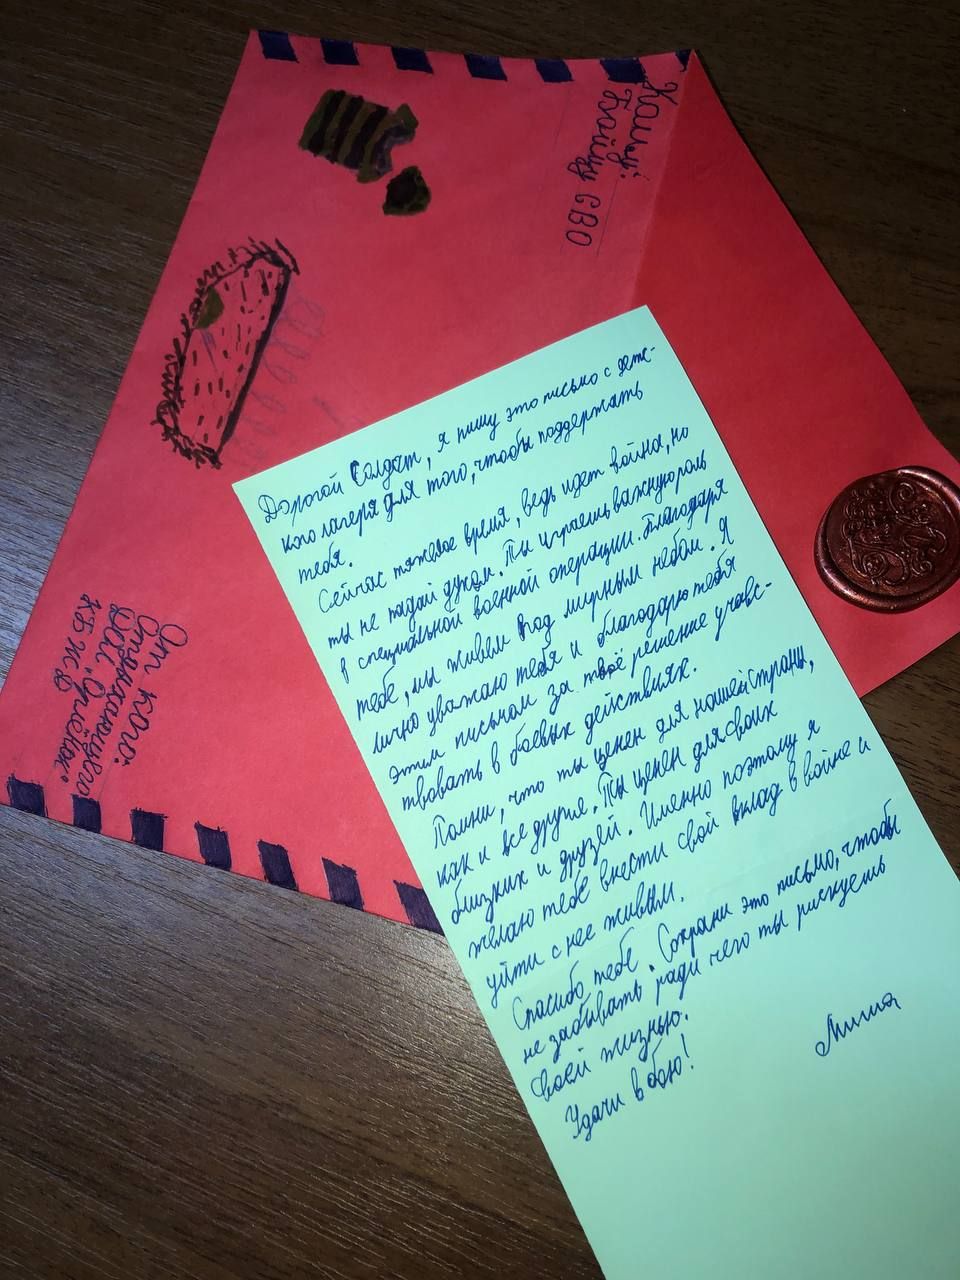 Кому:
Бойцу СВО
От кого:
Отдыхающего
ДОЛ "Орлёнок"
КБЖД
Дорогой Солдат, я пишу это письмо с детс-
кого лагеря для того, чтобы поддержать
тебя.
Сейчас тяжелое время, ведь идет война, но
ты не падай духом. Ты играешь важную роль
в специальной военной операции. Благодаря
тебе, мы живем под мирным небом. Я
лично уважаю тебя и благодарю тебя
этим письмом за твоё решение учавс-
твовать в боевых действиях.
Помни, что ты ценен для нашей страны,
как и все другие. Ты ценен для своих
близких и друзей. Именно поэтому я
желаю тебе внести свой вклад в войне и
уйти с нее живым.
Спасибо тебе. Сохрани это письмо, чтобы
не забывать ради чего ты рискуешь
своей жизнью.
Удачи в бою!
Миша